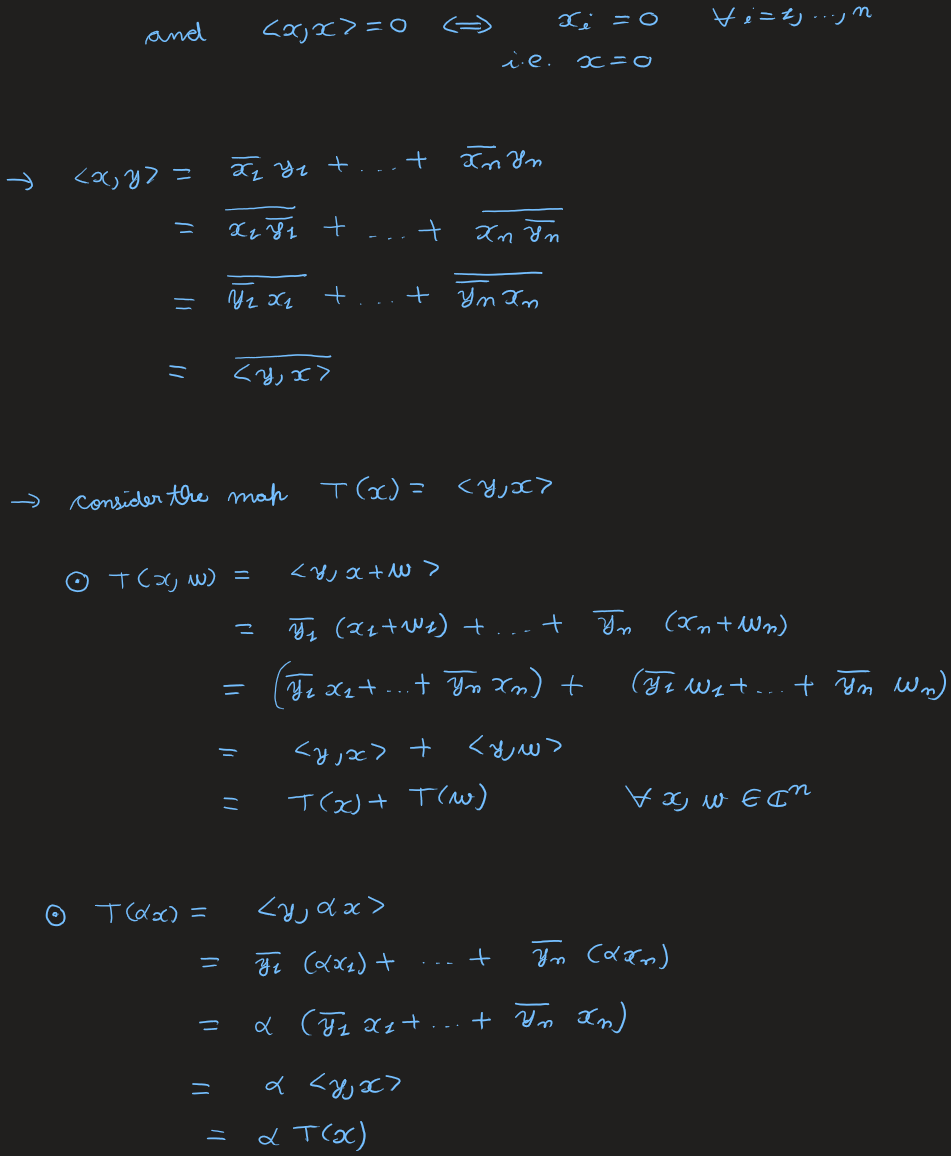 and <x,x> = 0 ⟺ xᵢ = 0 ∀ i = 1, ..., n
i.e. x = 0
→ <x,y> = x̅₁ y₁ + ... + x̅ₙ yₙ
= \overline{x₁ y̅₁} + ... + \overline{xₙ y̅ₙ}
= \overline{y̅₁ x₁} + ... + \overline{y̅ₙ xₙ}
= \overline{<y,x>}
→ consider the map T(x) = <y,x>
⊙ T(x, w) = <y, x+w>
= y̅₁ (x₁+w₁) + ... + y̅ₙ (xₙ+wₙ)
= (y̅₁ x₁ + ... + y̅ₙ xₙ) + (y̅₁ w₁ + ... + y̅ₙ wₙ)
= <y,x> + <y,w>
= T(x) + T(w) ∀ x, w ∈ ℂⁿ
⊙ T(αx) = <y, αx>
= y̅₁ (αx₁) + ... + y̅ₙ (αxₙ)
= α (y̅₁ x₁ + ... + y̅ₙ xₙ)
= α <y,x>
= α T(x)